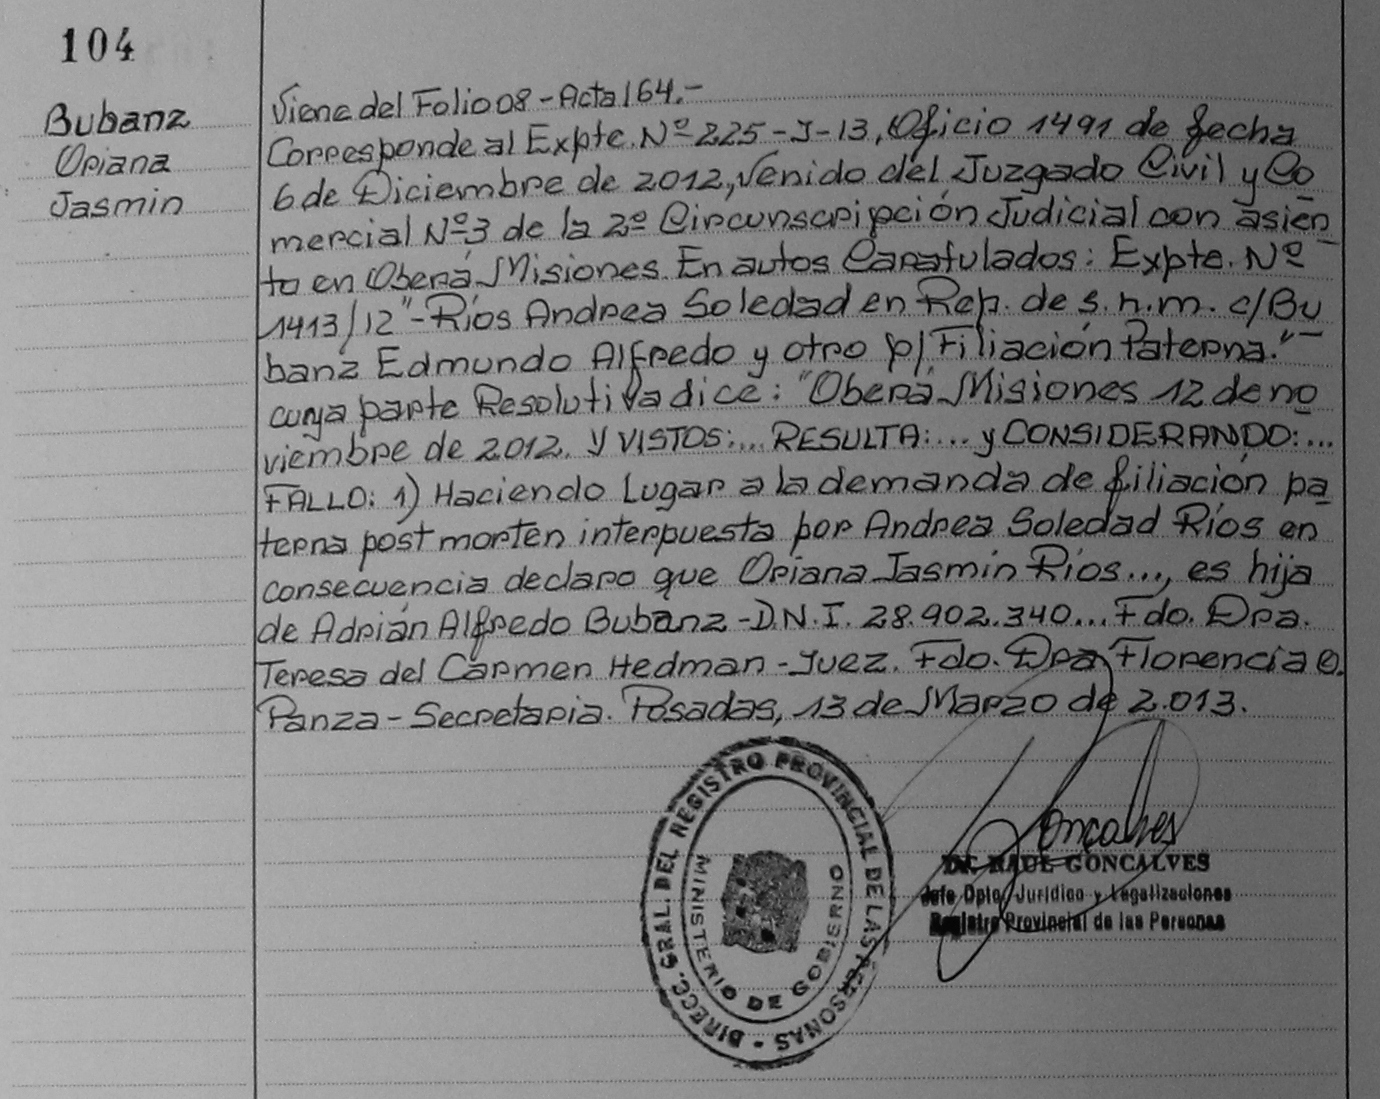 104
Bubanz
Oriana
Jasmin
Viene del Folio 08 - Acta 164.-
Corresponde al Expte. Nº 225-J-13, Oficio 1491 de fecha
6 de Diciembre de 2012, venido del Juzgado Civil y Co
mercial Nº 3 de la 2º Circunscripción Judicial con asien
to en Oberá Misiones. En autos Caratulados: Expte. Nº
1413/12 "-Ríos Andrea Soledad en Rep. de s.h.m. c/Bu
banz Edmundo Alfredo y otro p/ Filiación Paterna."
cuya parte Resolutiva dice: "Oberá, Misiones 12 de no
viembre de 2.012. Y VISTOS:... RESULTA:... y CONSIDERANDO:...
FALLO: 1) Haciendo Lugar a la demanda de filiación pa
terna post morten interpuesta por Andrea Soledad Ríos en
consecuencia declaro que Oriana Jasmin Ríos..., es hija
de Adrián Alfredo Bubanz - D.N.I. 28.902.340... Fdo. Dra.
Teresa del Carmen Hedman - Juez. Fdo. Dra Florencia C.
Panza - Secretaria. Posadas, 13 de Marzo de 2.013.
DIRECC. GRAL. DEL REGISTRO PROVINCIAL DE LAS PERSONAS -
MINISTERIO DE GOBIERNO
Goncalves
Dr. RAUL GONCALVES
Jefe Dpto. Jurídico y Legalizaciones
Registro Provincial de las Personas